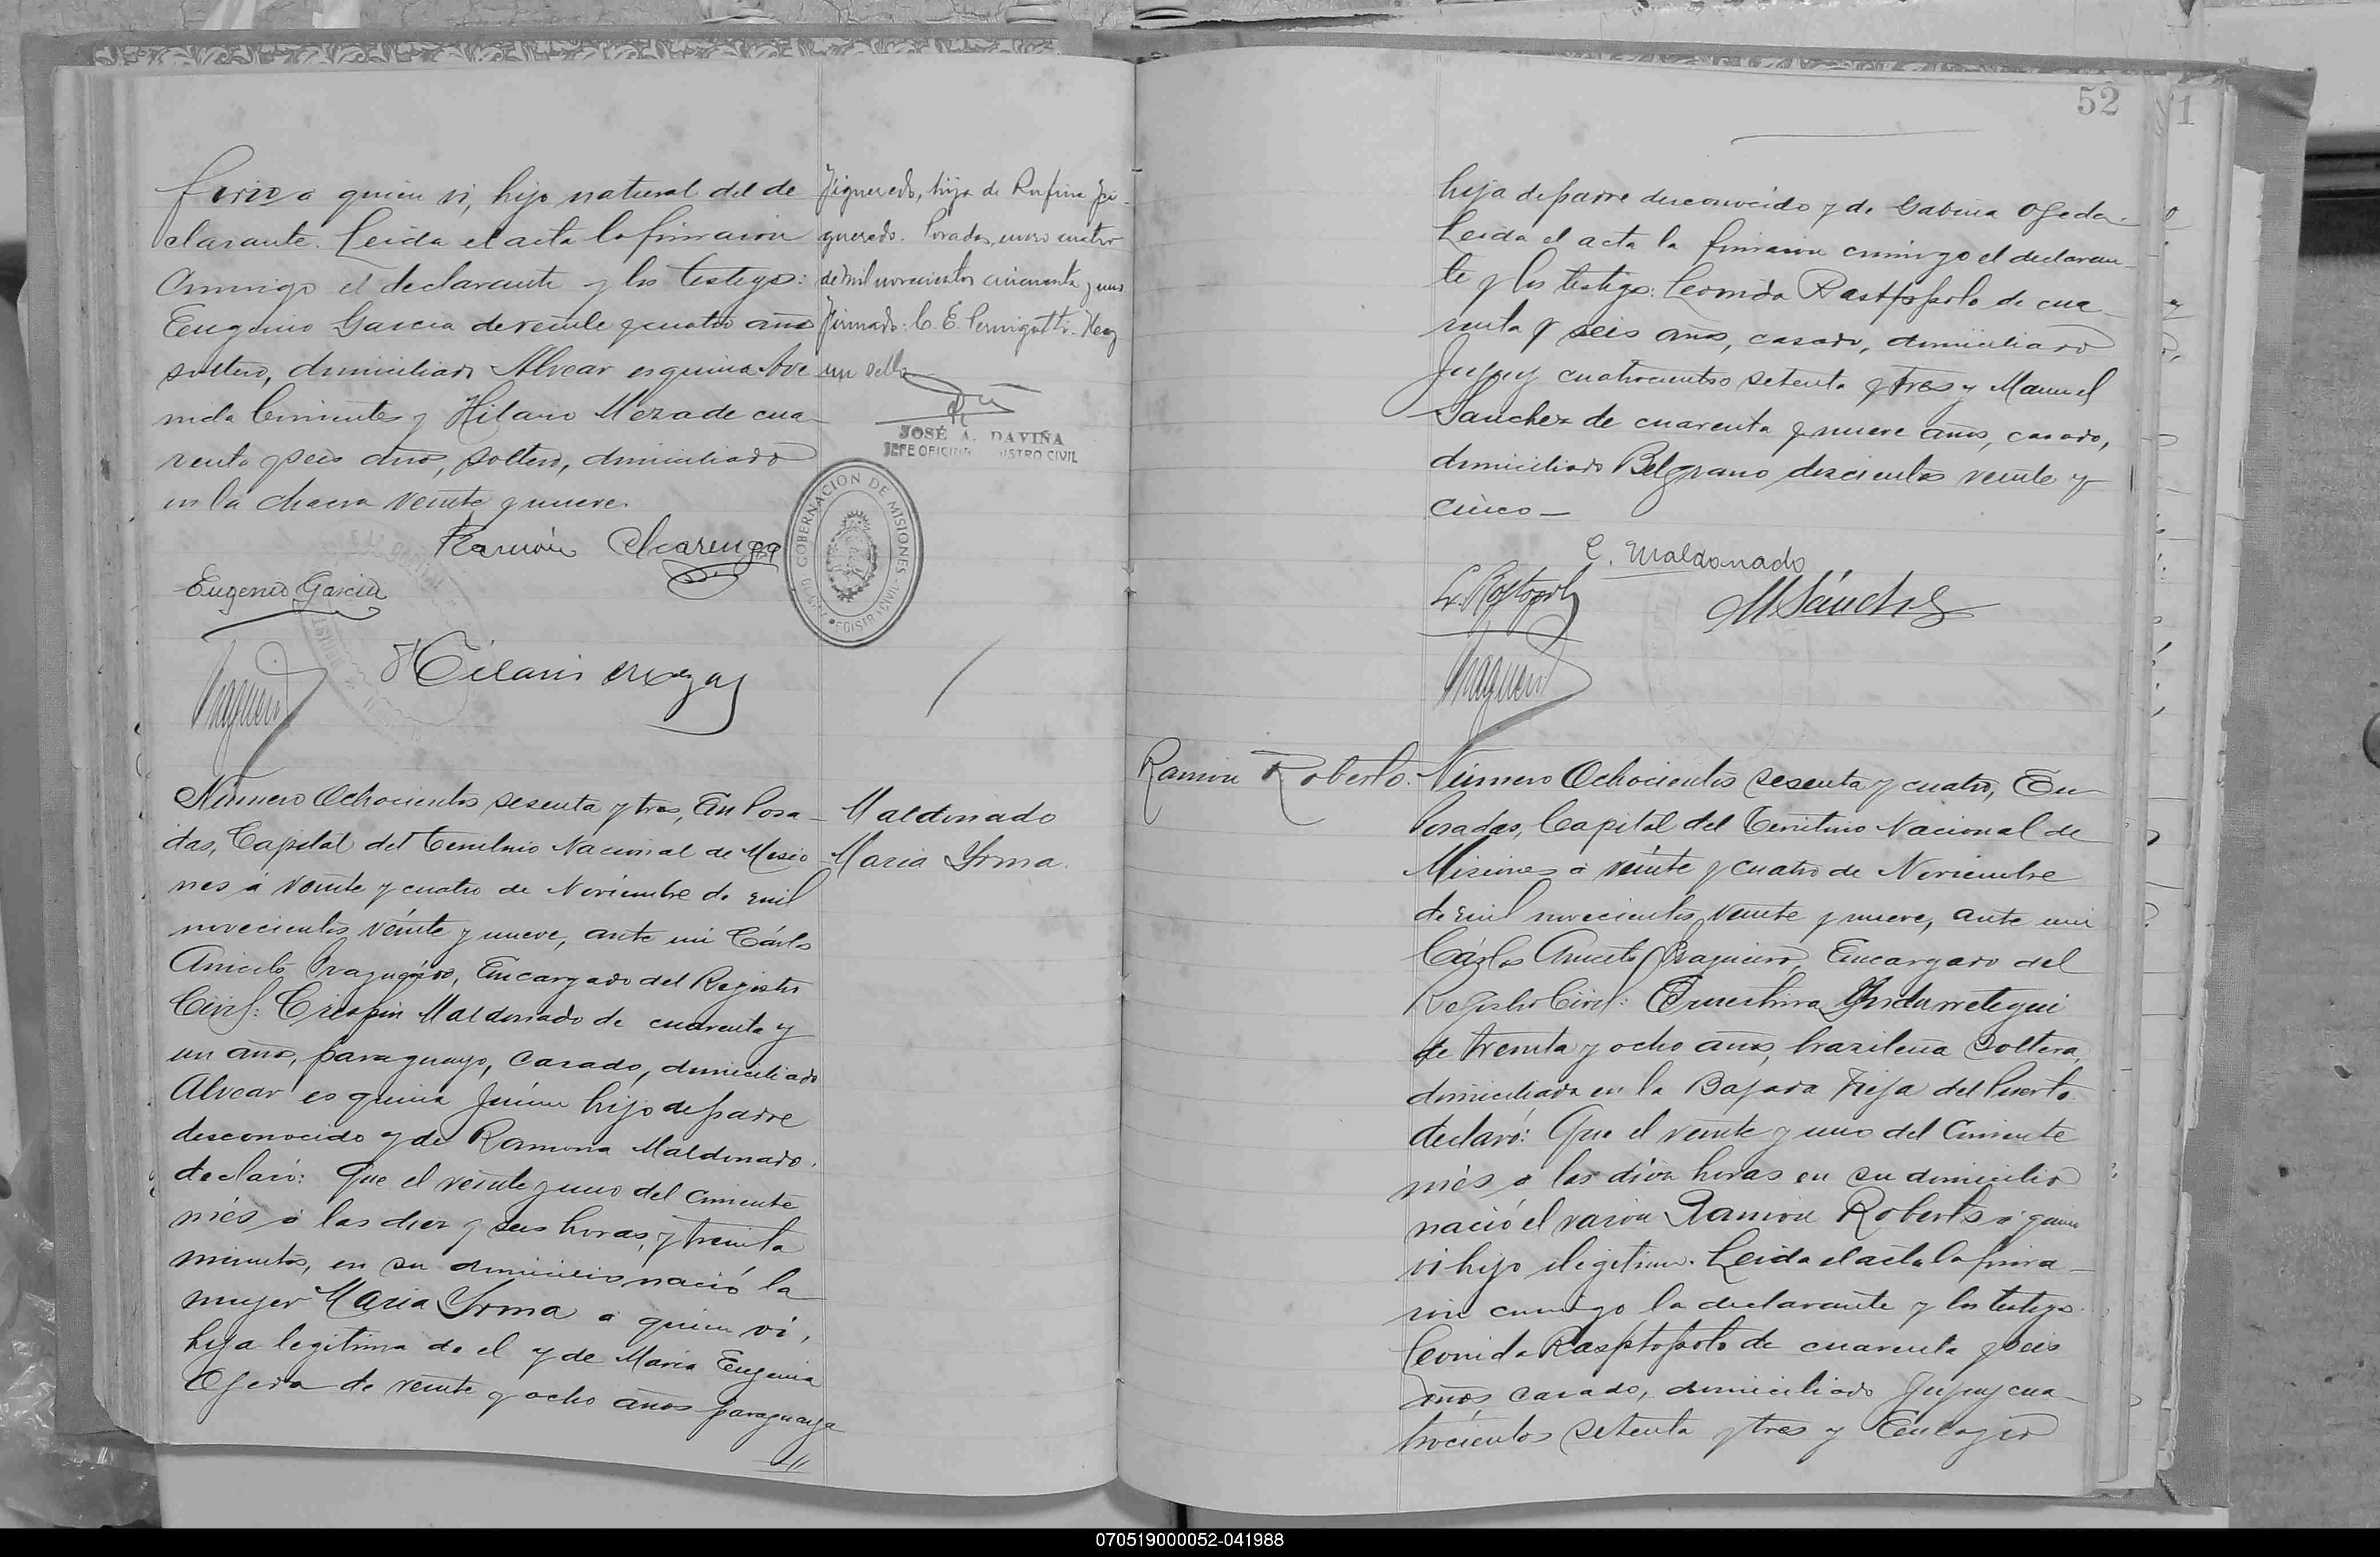 a quien vi, hijo natural del de
clarante. Leida el acta la firmaron
conmigo el declarante y los testigos:
Eugenio Garcia de veinte y cuatro años
soltero, domiciliado Alvear esquina Ave
nida Corrientes y Hilario Meza de cua
renta y seis años, soltero, domiciliado
en la chacra veinte y nueve.
Ramón Alvarenga
Eugenio Garcia
Hilario Meza
Figueredo, hija de Rufina Fi-
gueredo. Posadas, enero cuatro
de mil novecientos cincuenta y uno
Firmado: C. E. Hay
un sello
JOSÉ A. DAVIÑA
JEFE OFICINA REGISTRO CIVIL
GOBERNACION DE MISIONES
REGISTRO CIVIL
Número Ochocientos sesenta y tres, En Posa-
das, Capital del Territorio Nacional de Misio
nes á veinte y cuatro de Noviembre de mil
novecientos veinte y nueve, ante mi Cárlos
Aniceto Fragueiro, Encargado del Registro
Civil: Crispin Maldonado de cuarenta y
un años, paraguayo, casado, domiciliado
Alvear esquina Junin hijo de padre
desconocido y de Ramona Maldonado,
declaró: Que el veinte y uno del corriente
més á las diez y seis horas, y treinta
minutos, en su domicilio nació la
mujer Maria Yrma á quien vi,
hija legitima de el y de Maria Eugenia
Ojeda de veinte y ocho años paraguaya
Maldonado
Maria Yrma.
52
1
hija de padre desconocido y de Gabina Ojeda.
Leida el acta la firmaron conmigo el declaran-
te y los testigos: Leonida Rastopolo de cua-
renta y seis años, casado, domiciliado
Jujuy cuatrocientos setenta y tres y Manuel
Sanchez de cuarenta y nueve años, casado,
domiciliado Belgrano doscientos veinte y
cinco —
C. Maldonado
M Sánchez
Ramon Roberto.
Número Ochocientos sesenta y cuatro, En
Posadas, Capital del Territorio Nacional de
Misiones á veinte y cuatro de Noviembre
de mil novecientos veinte y nueve, ante mi
Cárlos Aniceto Fragueiro, Encargado del
Registro Civil: Ernestina Yndarretegui
de treinta y ocho años, brazileña soltera,
domiciliada en la Bajada Vieja del Puerto.
declaró: Que el veinte y uno del corriente
més á las diez horas en su domicilio
nació el varon Ramon Roberto á quien
vi hijo ilegitimo. Leida el acta la firma-
ron conmigo la declarante y los testigos
Leonida Rasptopolo de cuarenta y seis
años, casado, domiciliado Jujuy cua-
trocientos setenta y tres y Eulogio
070519000052-041988